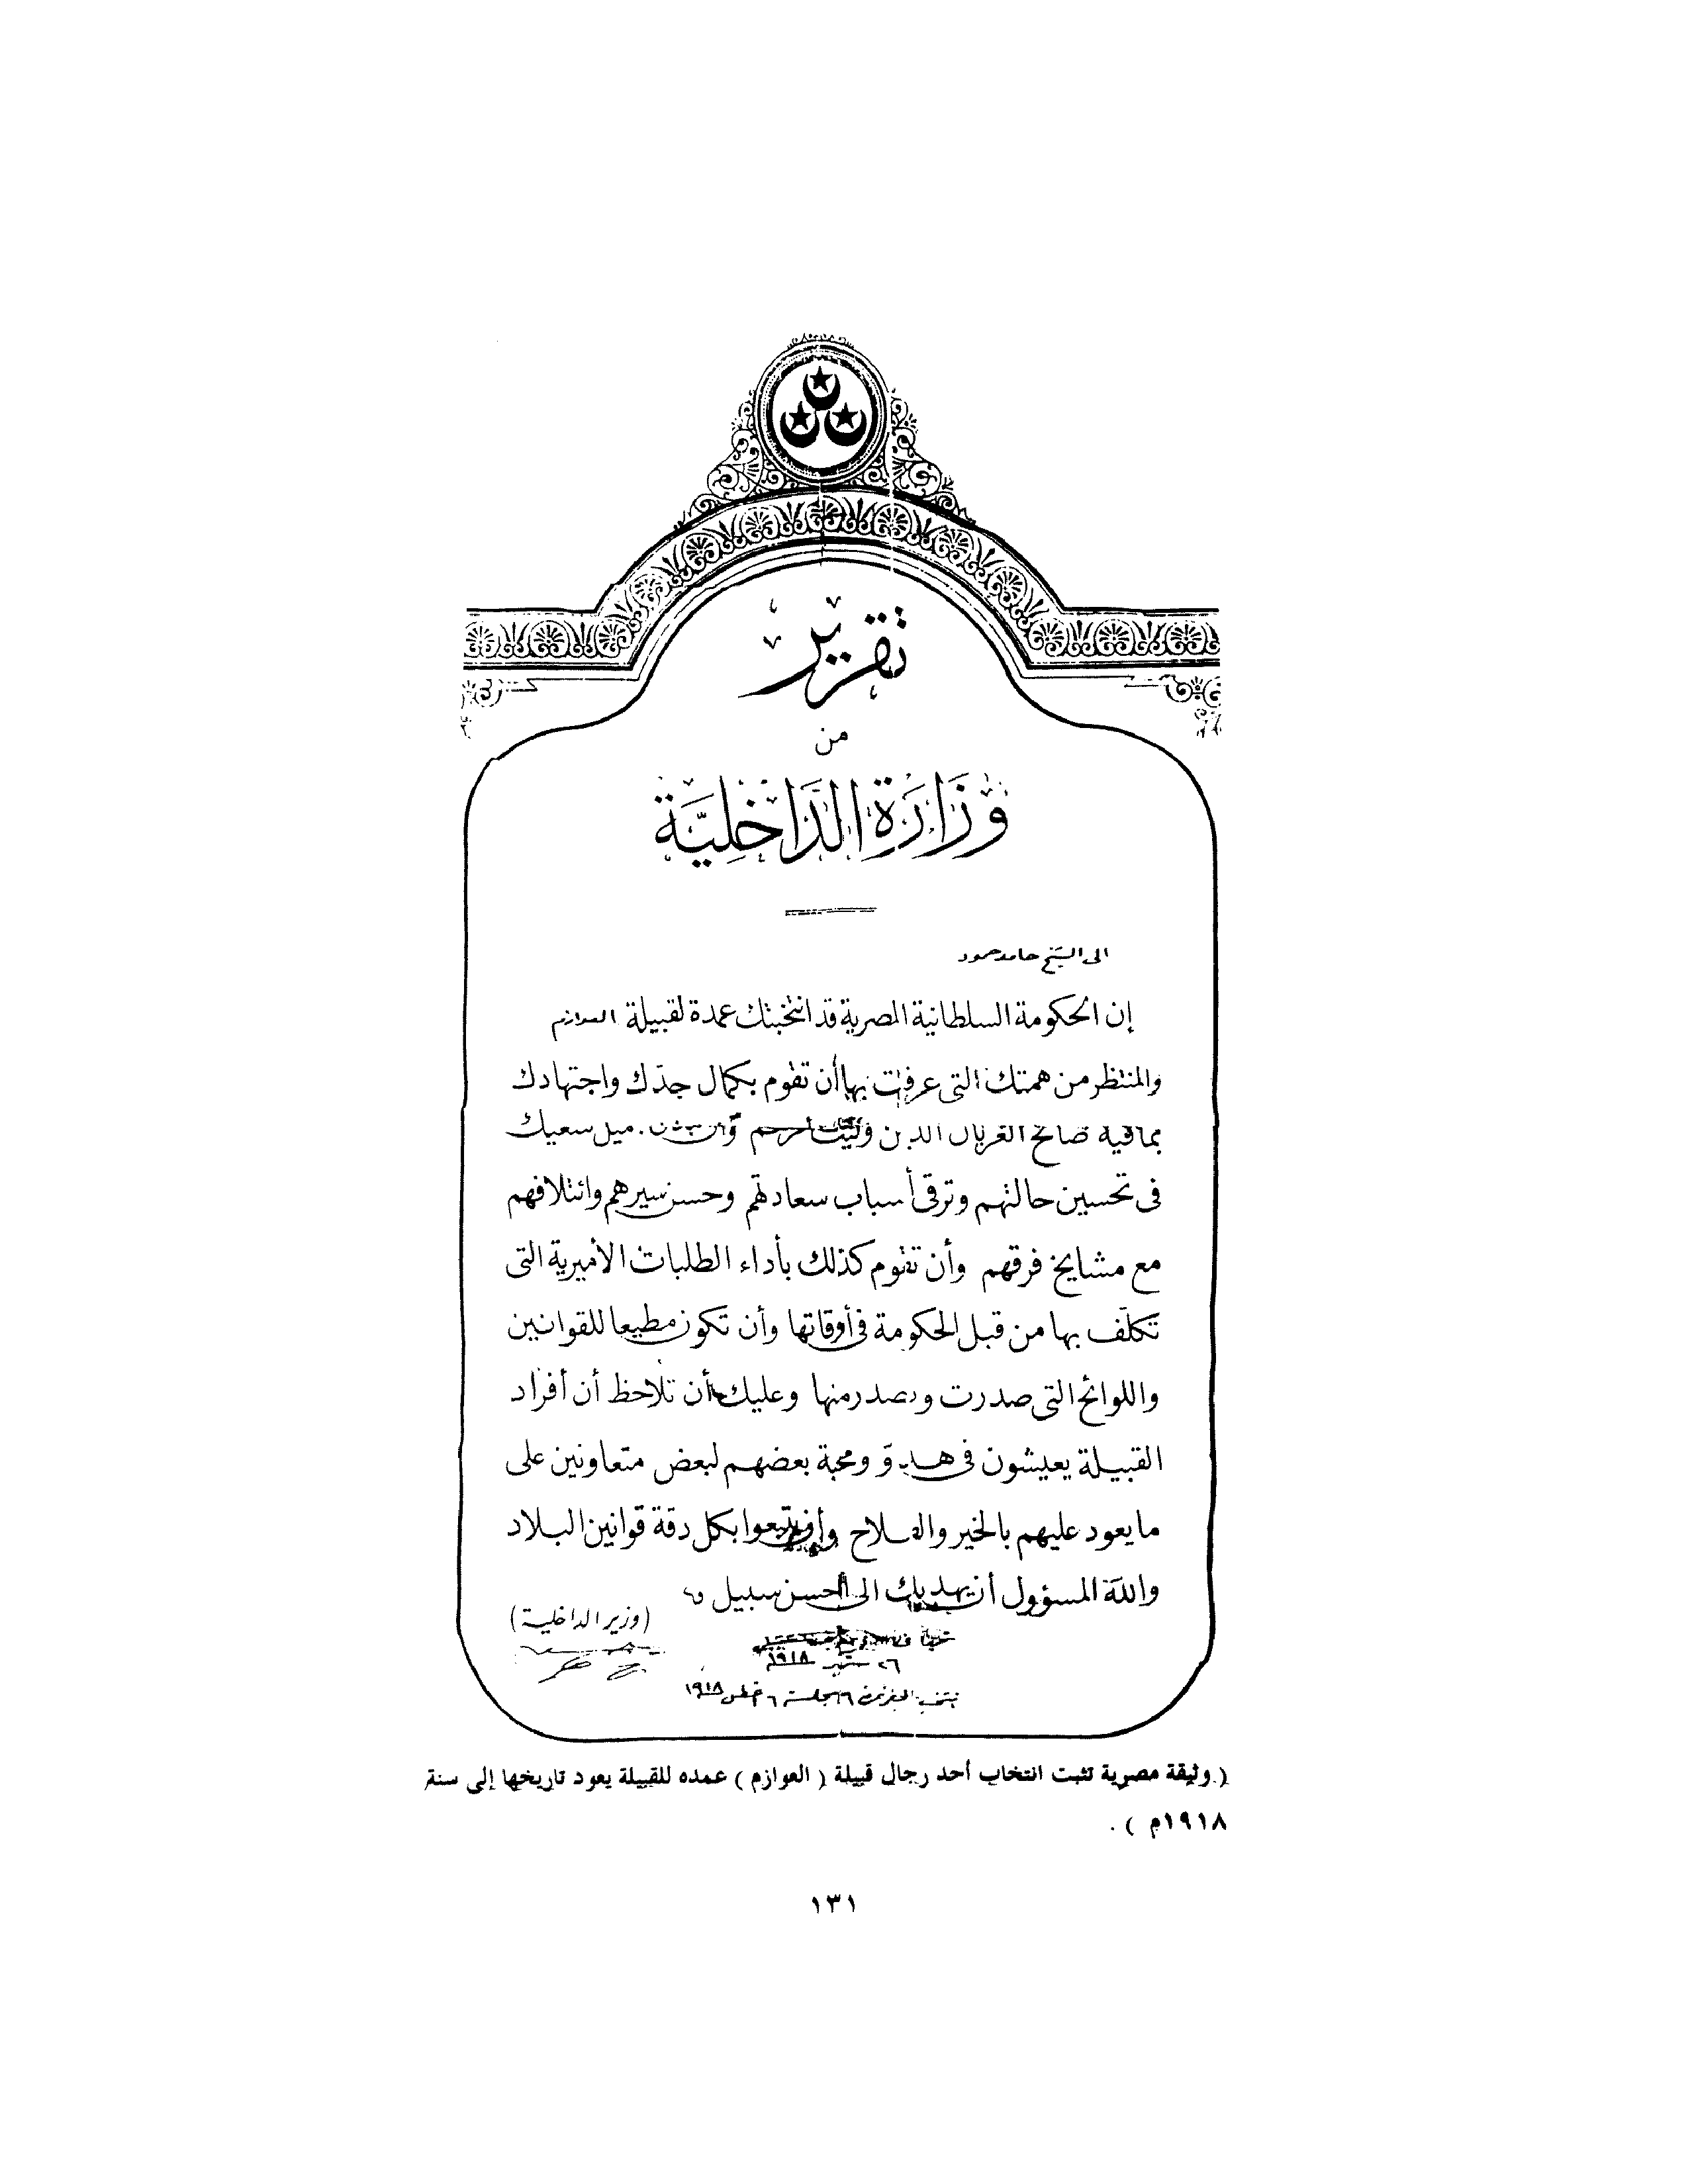 تقرير
من
وزارة الداخلية
الى الشيخ حامد حمود
إن الحكومة السلطانية المصرية قد انتخبتك عمدة لقبيلة العوازم
والمنتظر من همتك التى عرفت بها أن تقوم بكمال جدّك واجتهادك
بما فيه صالح العربان الذين وليت أمرهم وأن سعيك
فى تحسين حالتهم وترقى أسباب سعادتهم وحسن سيرهم وائتلافهم
مع مشايخ فرقهم وأن تقوم كذلك بأداء الطلبات الأميرية التى
تكلّف بها من قبل الحكومة فى أوقاتها وأن تكون مطيعا للقوانين
واللوائح التى صدرت وتصدر منها وعليك أن تلاحظ أن أفراد
القبيلة يعيشون فى ومحبة بعضهم لبعض متعاونين على
ما يعود عليهم بالخير والفلاح وأن يتبعوا بكل دقة قوانين البلاد
والله المسؤول أن يهديك الى أحسن سبيل
(وزير الداخلية)
٢٦ سبتمبر ١٩١٨
جلسة ٦ أغسطس ١٩١٨
( وثيقة مصرية تثبت انتخاب أحد رجال قبيلة ( العوازم ) عمده للقبيلة يعود تاريخها إلى سنة
١٩١٨م ) .
١٣١